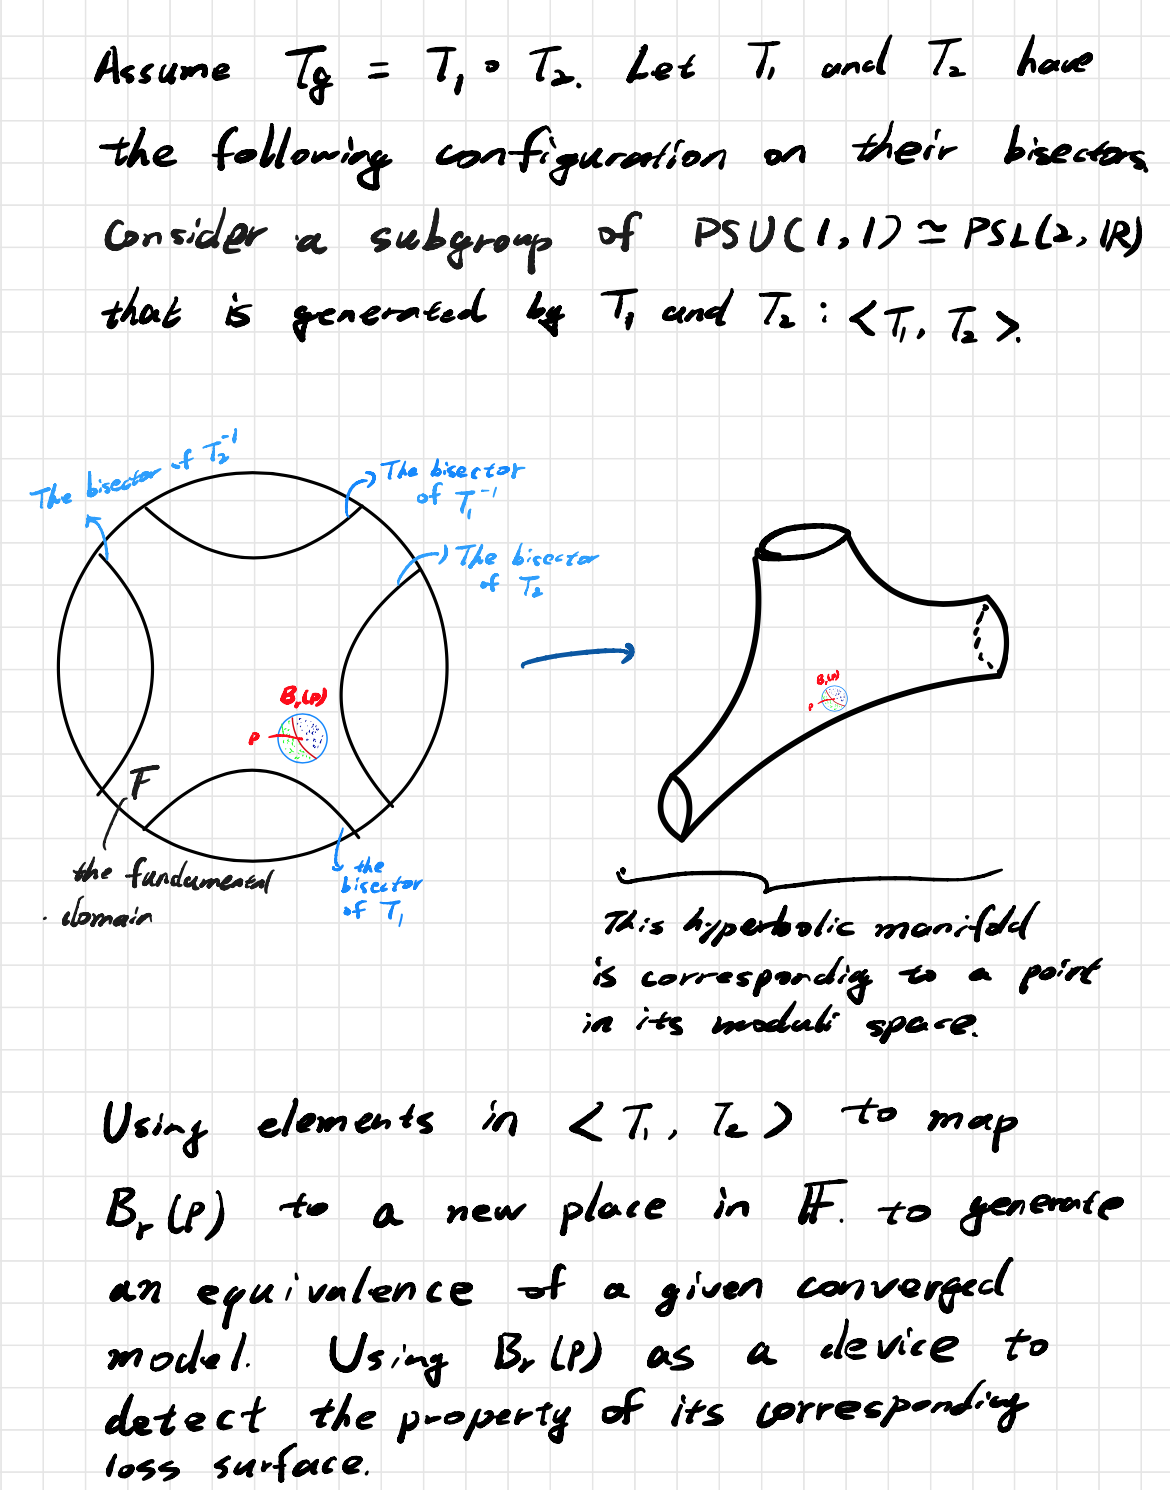 Assume Tg = T₁ ∘ T₂. Let T₁ and T₂ have
the following configuration on their bisectors
Consider a subgroup of PSU(1,1) ≃ PSL(2,ℝ)
that is generated by T₁ and T₂ : <T₁, T₂>.
The bisector of T₂⁻¹
The bisector
of T₁⁻¹
The bisector
of T₂
Br(P)
P
F
the fundamental
domain
the
bisector
of T₁
Br(P)
P
This hyperbolic manifold
is correspondig to a point
in its moduli space.
Using elements in <T₁, T₂> to map
Br(P) to a new place in F. to generate
an equivalence of a given converged
model. Using Br(P) as a device to
detect the property of its corresponding
loss surface.